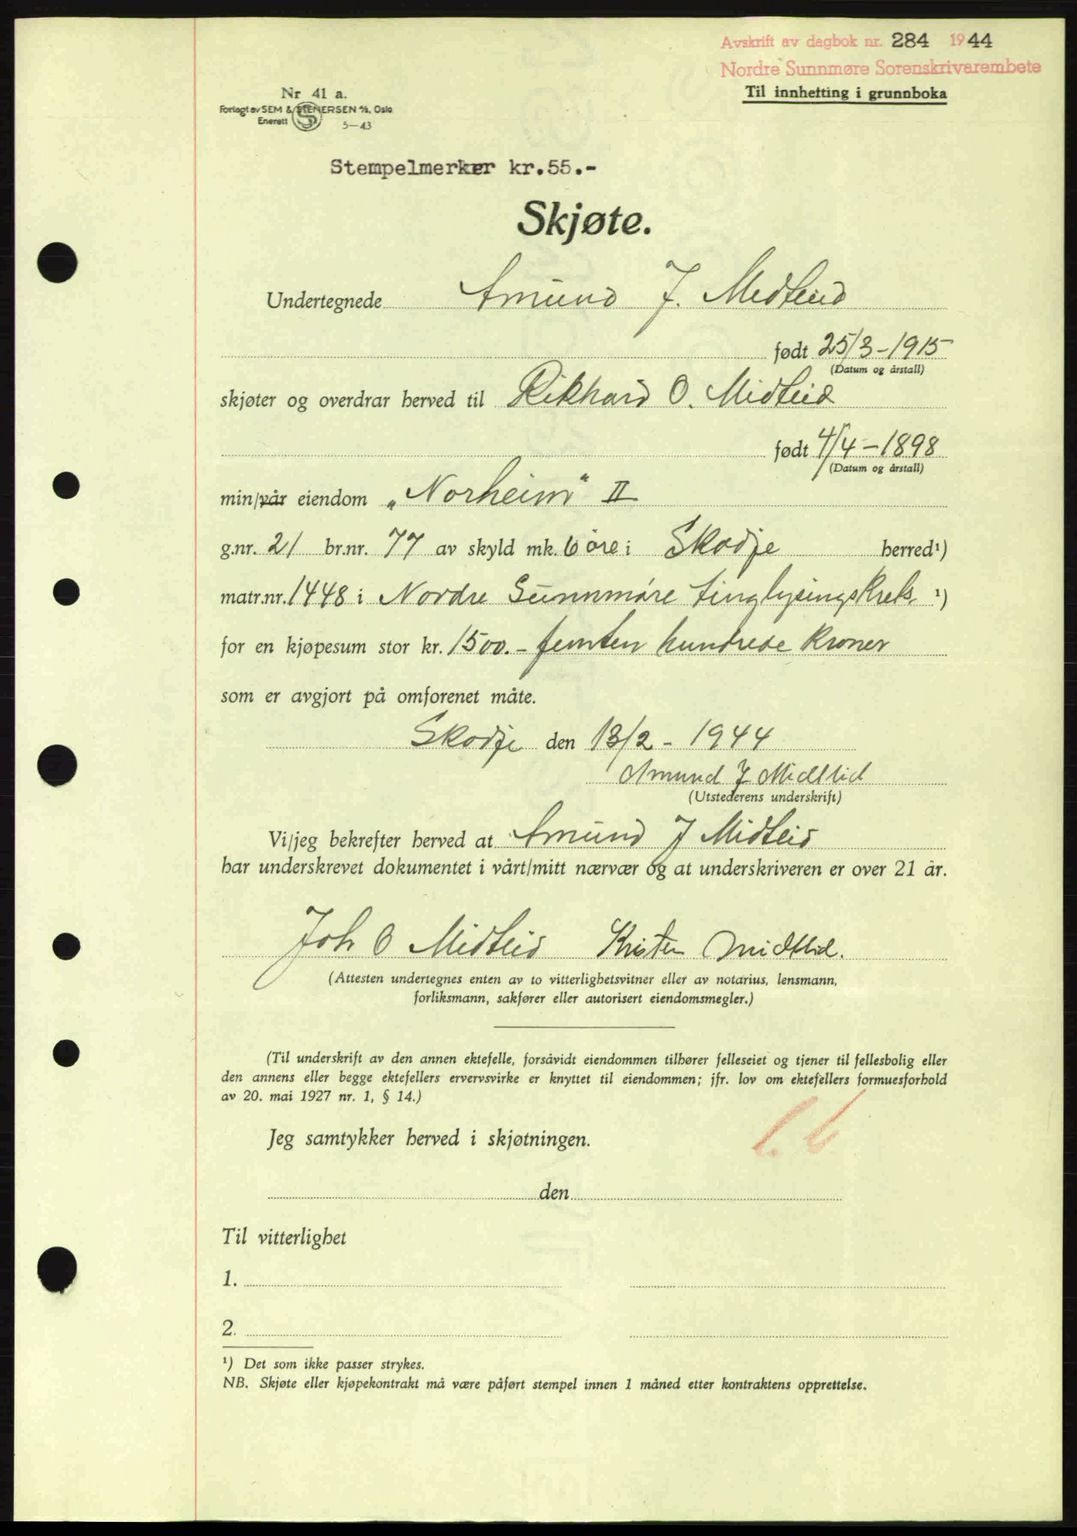 Avskrift av dagbok nr. 284 1944
Nordre Sunnmøre Sorenskrivarembete
Til innhefting i grunnboka
Nr 41 a.
Forlagt av SEM & STENERSEN A/S, Oslo
Enerett S 5-43
Stempelmerker kr.55.-
Skjøte.
Undertegnede Amund J. Midtlid
født 25/3-1915
(Datum og årstall)
skjøter og overdrar herved til Rikhard O. Midtlid
født 4/4-1898
(Datum og årstall)
min/vår eiendom „Norheim" II
g.nr. 21 br.nr. 77 av skyld mk. 6 øre i Skodje herred¹)
matr.nr. 1448 i Nordre Sunnmøre tinglysingskrets ¹)
for en kjøpesum stor kr. 1500.- femten hundrede kroner
som er avgjort på omforenet måte.
Skodje den 13/2 - 1944
Amund J Midtlid
(Utstederens underskrift)
Vi/jeg bekrefter herved at Amund J Midtlid
har underskrevet dokumentet i vårt/mitt nærvær og at underskriveren er over 21 år.
Joh O Midtlid Kristen Midtlid.
(Attesten undertegnes enten av to vitterlighetsvitner eller av notarius, lensmann,
forliksmann, sakfører eller autorisert eiendomsmegler.)
(Til underskrift av den annen ektefelle, forsåvidt eiendommen tilhører felleseiet og tjener til fellesbolig eller
den annens eller begge ektefellers ervervsvirke er knyttet til eiendommen; jfr. lov om ektefellers formuesforhold
av 20. mai 1927 nr. 1, § 14.)
Jeg samtykker herved i skjøtningen.
den
Til vitterlighet
1.
2.
¹) Det som ikke passer strykes.
NB. Skjøte eller kjøpekontrakt må være påført stempel innen 1 måned etter kontraktens opprettelse.